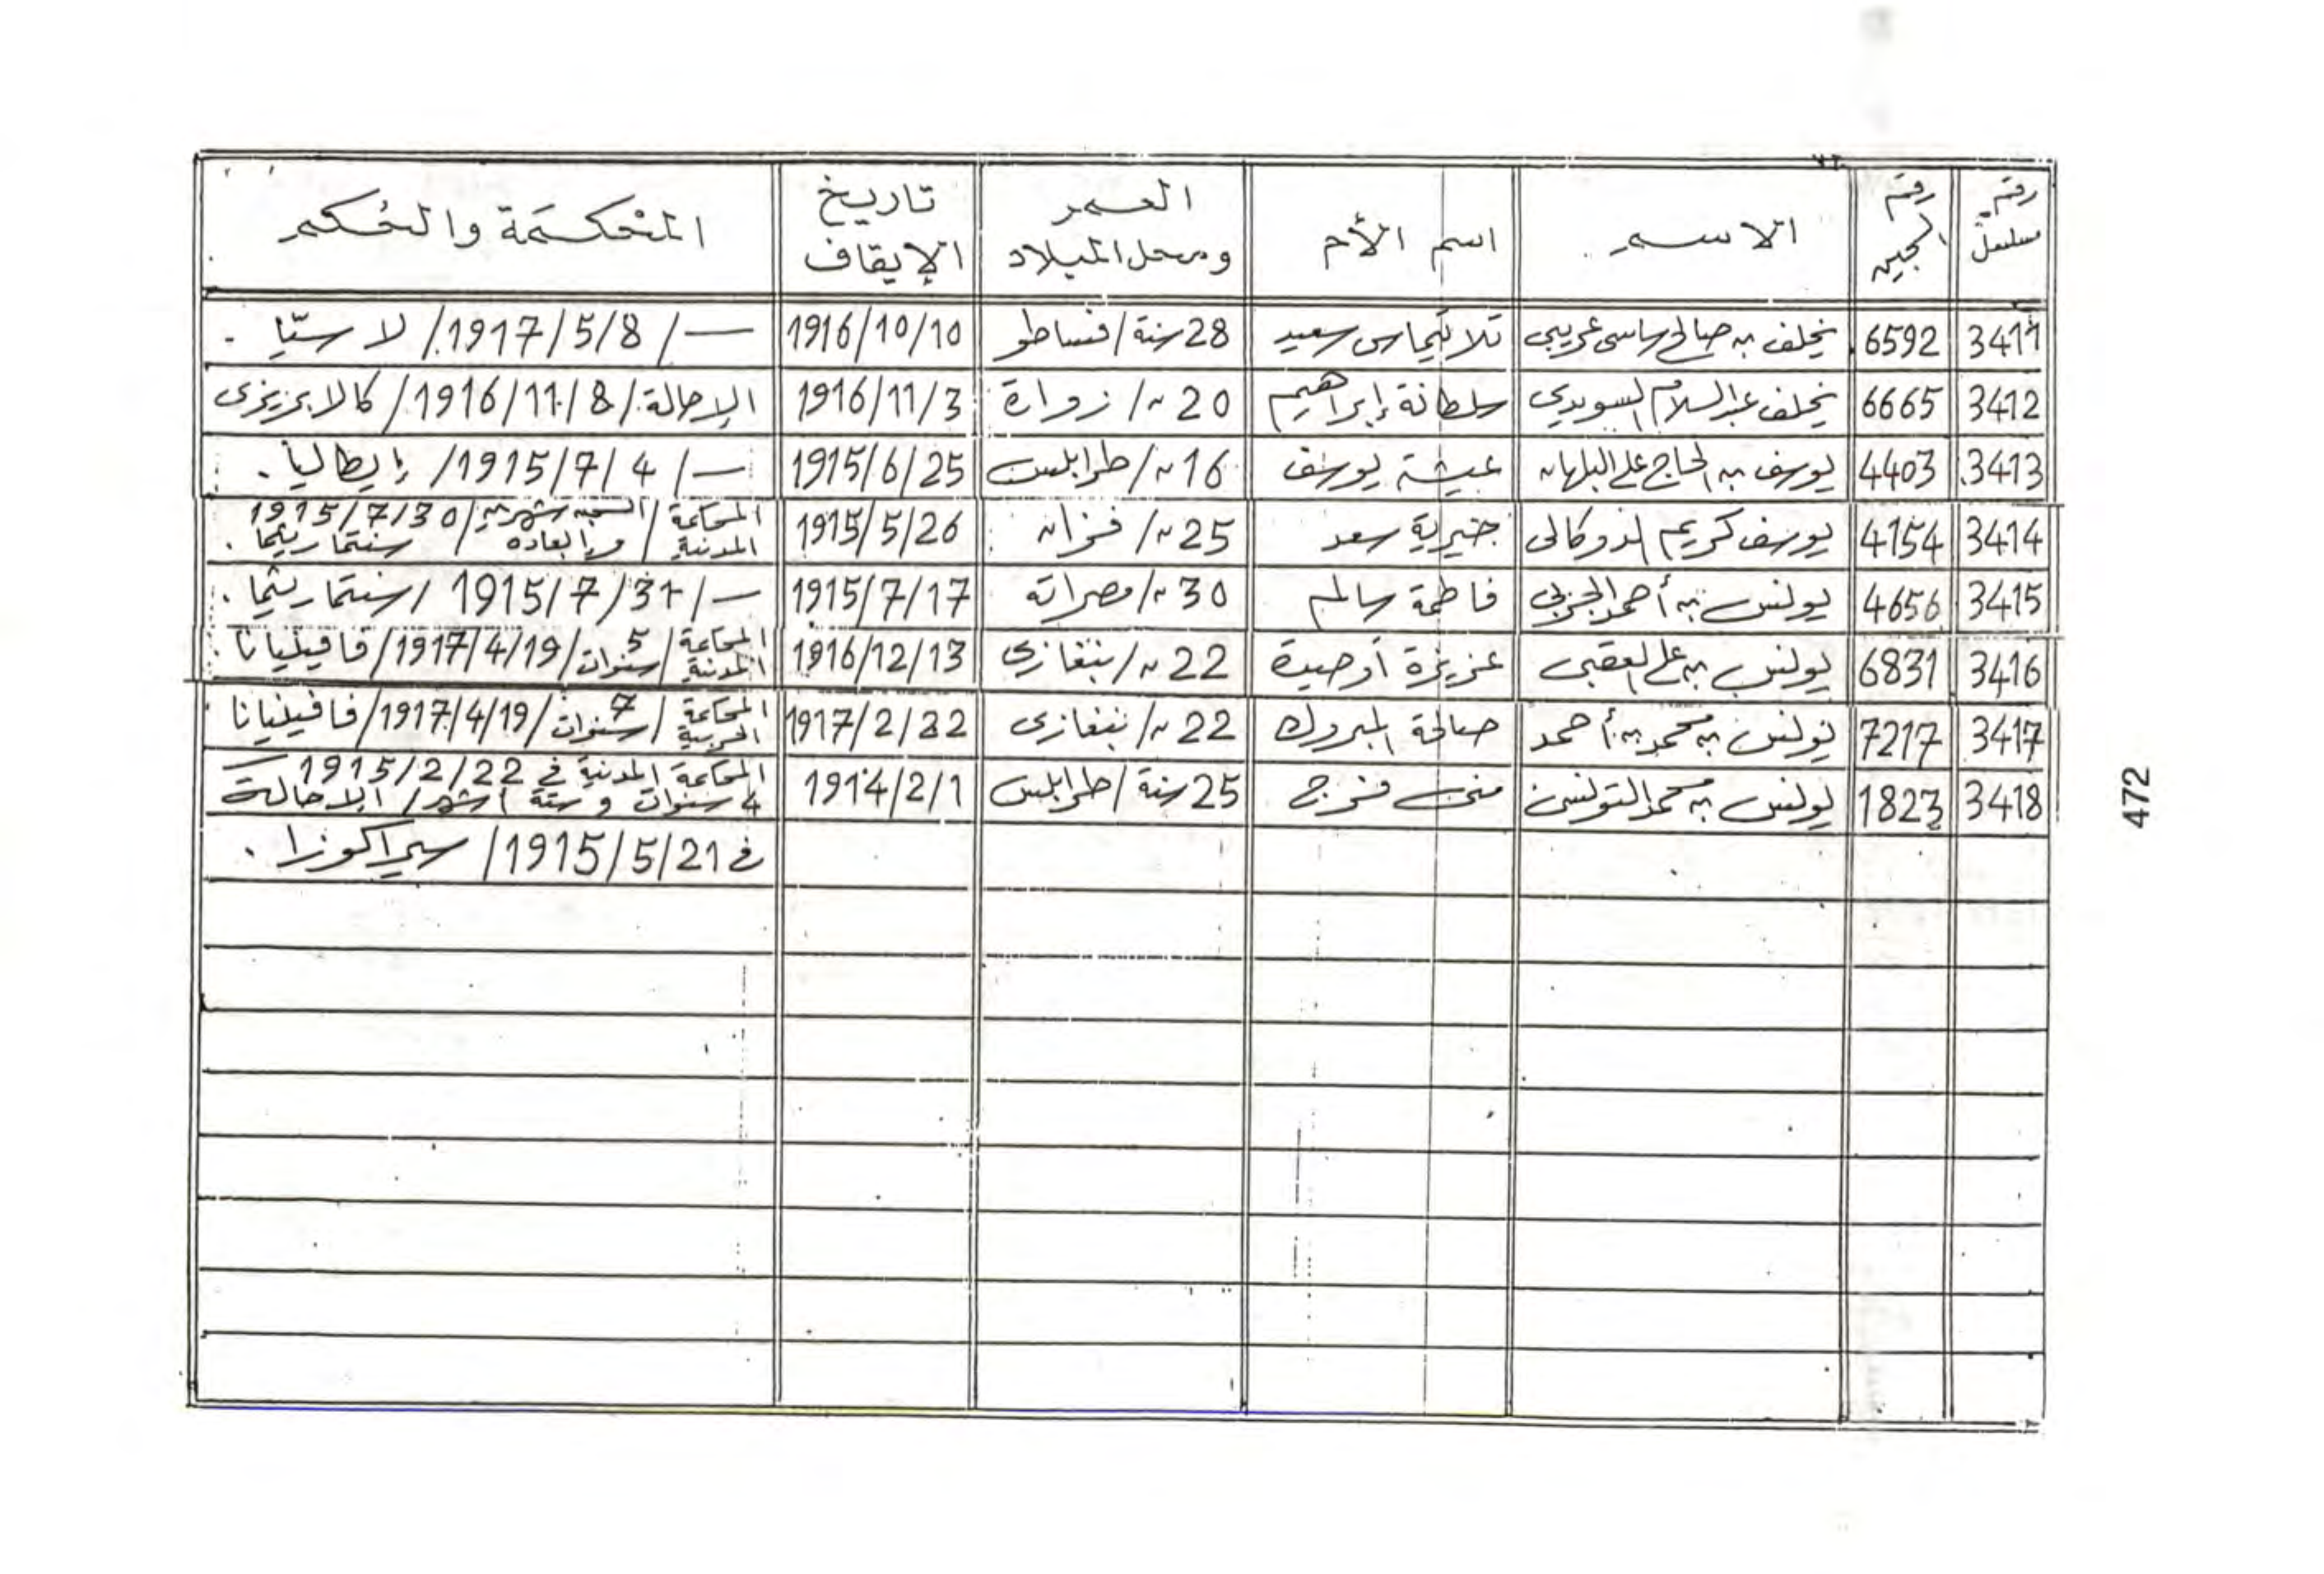 رقم مسلسل | رقم السجين | الاسم | اسم الأم | العمر ومحل الميلاد | تاريخ الإيقاف | المحكمة والحكم
3411 | 6592 | يخلف بن صالح ساسي عريبي | سعيد | 28 سنة / فساطو | 1916/10/10 | — / 1917/5/8 / لا ستيا .
3412 | 6665 | يخلف عبد السلام السويدي | سلطانة إبراهيم | 20 " / زوارة | 1916/11/3 | الإحالة / 1916/11/8 / كالابريزى
3413 | 4403 | يوسف بن الحاج علي البلهان | عيشة يوسف | 16 " / طرابلس | 1915/6/25 | — / 1915/7/4 / إيطاليا .
3414 | 4154 | يوسف كريم الدوكالى | خيرية سعد | 25 " / فزان | 1915/5/26 | المحكمة المدنية / السجن شهرين / 1915/7/30 / سنتماريتما .
3415 | 4656 | يونس بن أحمد | فاطمة سالم | 30 " / مصراته | 1915/7/17 | — / 1915/7/31 / سنتماريتما .
3416 | 6831 | يونس بن علي العقبى | عزيزة أوحيدة | 22 " / بنغازى | 1916/12/13 | المحكمة المدنية / 5 سنوات / 1917/4/19 / فافينيانا
3417 | 7217 | يونس بن محمد بن أحمد | صالحة المبروك | 22 " / بنغازى | 1917/2/22 | المحكمة الحربية / 7 سنوات / 1917/4/19 / فافينيانا
3418 | 1823 | يونس بن محمد التونسى | منى فرج | 25 سنة / طرابلس | 1914/2/1 | المحكمة المدنية في 1915/2/22
4 سنوات و ستة أشهر / الإحالة
في 1915/5/21 / سيراكوزا .
472